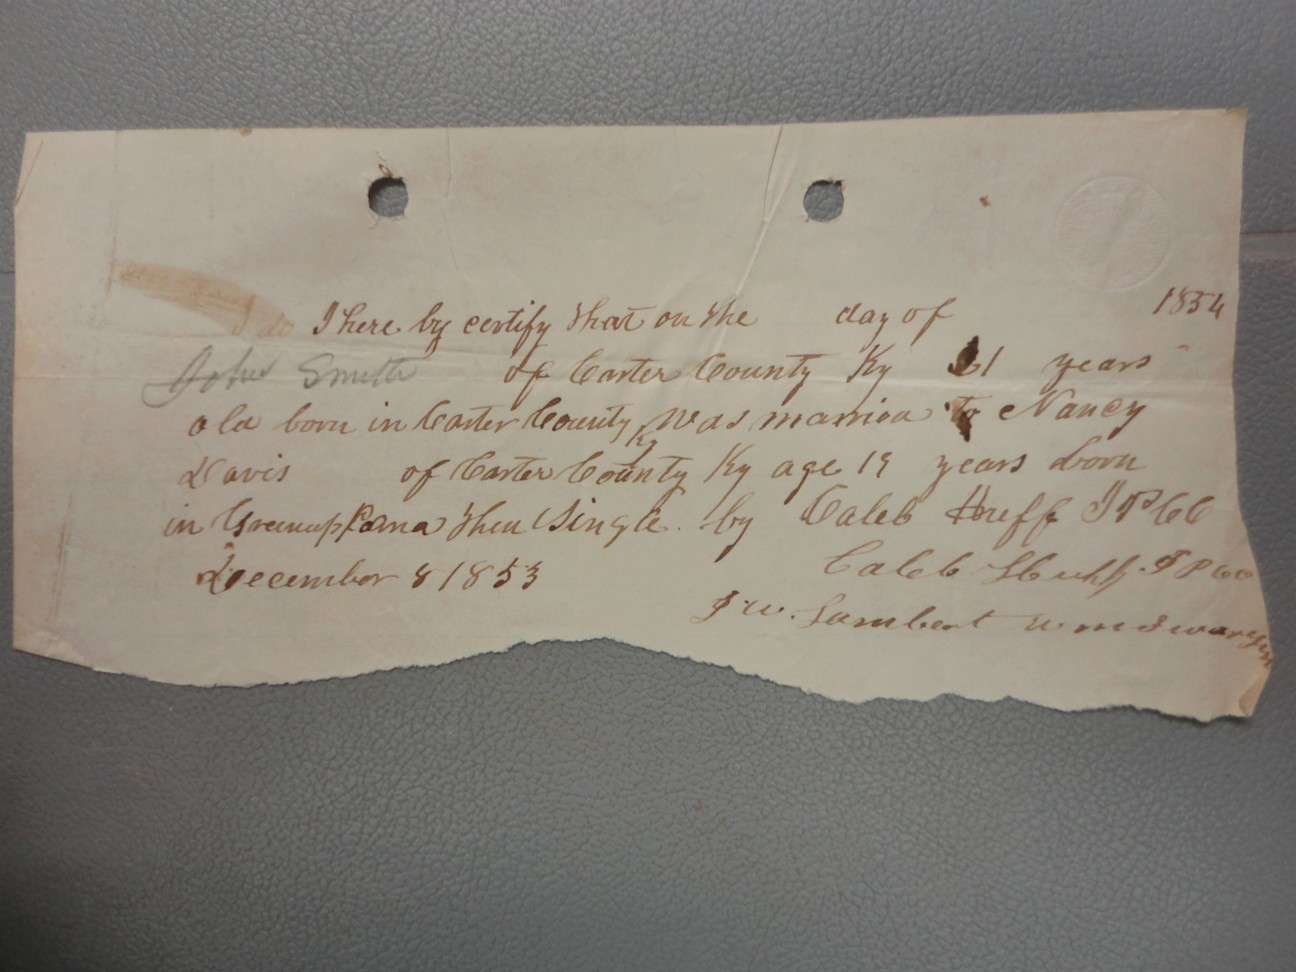 I do I here by certify that on the day of 1854
John Smith of Carter County Ky 21 years
old born in Carter County Ky Was married to Nancy
Davis of Carter County Ky age 19 years born
in Greenup then Single. by Caleb Huff JPCC
December 8 1853 Caleb Huff JPCC
J W. Lambert Wm